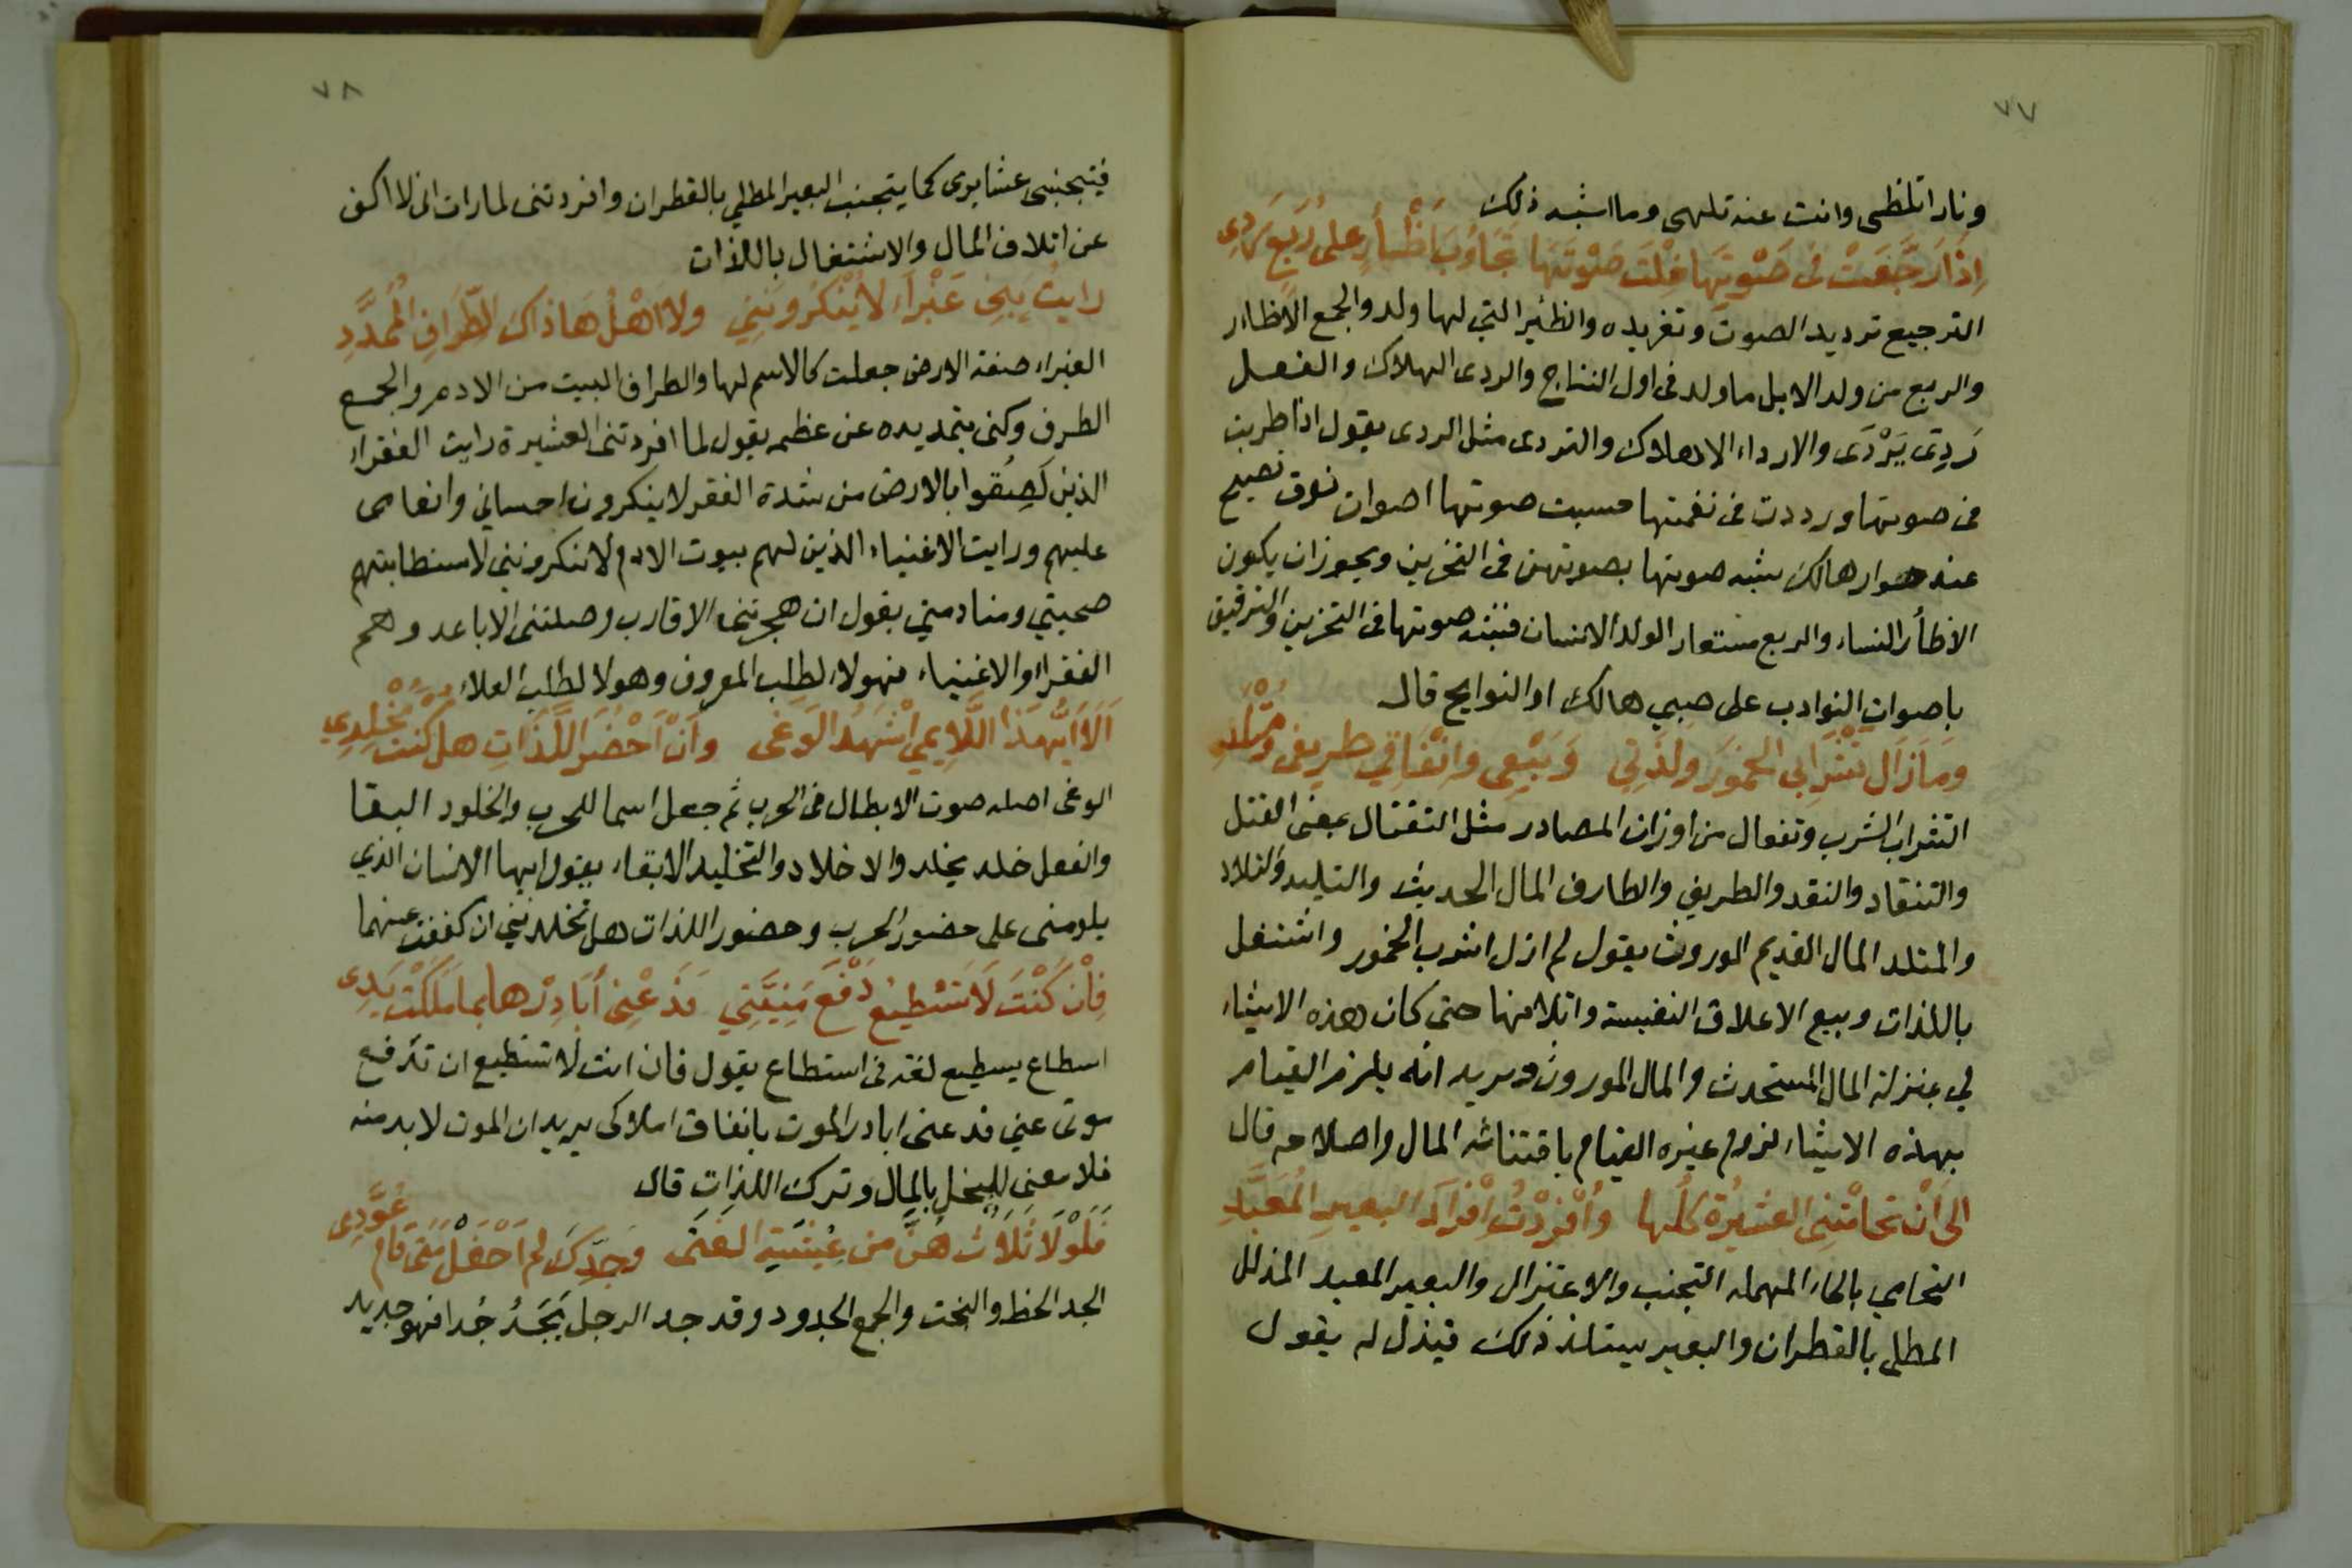 ٧٧
ونارا تلظى وانت عنه تلهى وما اشبه ذلك
اِذَا رَجَّعَتْ فى صَوْتِهَا خِلْتَ صَوْتَهَا تَجَاوُبَ اَظْـأرٍ على رُبَعٍ رَدِى
الترجيع ترديد الصوت وتغريده والظئر التي لها ولد والجمع الاظار
والربع من ولد الابل ما ولد فى اول النتاج والردى الهلاك والفعل
رَدِىَ يَرْدَى والارداء الاهلاك والتردى مثل الردى يقول اذا طربت
فى صوتها ورددت فى نغمتها حسبت صوتها اصوات نوق تصيح
عند حوار هالك شبه صوتها بصوتهن فى التحزين ويجوز ان يكون
الاظأر النساء والربع مستعار الولد الانسان فشبه صوتها فى التحزين والترقيق
باصوات النوادب على صبي هالك او النوايح قال
ومَازَال تَشْرابى الخمورَ ولذتِي وَبَيْعِى وانْفَاقِي طريفى ومُتْلَدِ
التشراب الشرب وتفعال من اوزان المصادر مثل التقتال بمعنى القتل
والتنقاد والنقد والطريف والطارف المال الحديث والتليد والتلاد
والمتلد المال القديم الموروث يقول لم ازل اشرب الخمور واشتغل
باللذات وبيع الاعلاق النفيسة واتلافها حتى كان هذه الاشياء
لي بمنزلة المال المستحدث والمال الموروث ويريد انه يلزم القيام
بهذه الاشياء لزوم غيره القيام باقتنائه المال واصلاحه قال
الى اَنْ تحامَتْنِى العشيرةُ كلُها وأُفْرِدْتُ اِفْرَادَ البعيرِ المُعَبَّدِ
التحامي بالحاء المهمله التجنب والاعتزال والبعير المعبد المذلل
المطلى بالقطران والبعير يستلذ ذلك فيذل له يقول
٧٨
فيتجنبنى عشايرى كما يتجنب البعير المطلي بالقطران وافردتنى لما رات انى لا اكف
عن اتلاف المال والاشتغال باللذات
رايتُ بنِى غَبْرَاءَ لا يُنْكرُونَنِي ولا اهْلُ هَاذاك الطِّرَافِ المُمَدَّدِ
الغبراء صفة الارض جعلت كالاسم لها والطراف البيت من الادم والجمع
الطرف وكنى بتمديده عن عظمه يقول لما افردتنى العشيرة رايت الفقراء
الذين لَصِقوا بالارض من شدة الفقر لا ينكرون احسانى وانعامى
عليهم ورايت الاغنياء الذين لهم بيوت الادم لا ينكروننى لاستطابتهم
صحبتي ومنادمتي يقول ان هجرتنى الاقارب وصلتنى الاباعد وهم
الفقراء والاغنياء فهولاء لطلب المعروف وهولا لطلب العلاء
اَلَا اَيُّهَذا اللَّايمِي اشْهَدُ الوَغَى واَنْ اَحْضُرَ اللَّذاتِ هل كنتَ مُخْلِدِي
الوغى اصله صوت الابطال فى الحرب ثم جعل اسما للحرب والخلود البقا
والفعل خلد يخلد والاخلاد والتخليد الابقاء يقول ايها الانسان الذي
يلومنى على حضور الحرب وحضور اللذات هل تخلدني ان كففت عنهما
فِانْ كُنْتَ لَا تَسْطِيعُ دَفْعَ مَنِيَّتِي فَدَعْنِى أُبَادِرْها بما مَلَكَتْ يَدِى
اسطاع يسطيع لغة فى استطاع يقول فان انت لا تستطيع ان تدفع
موتى عني فدعنى ابادر الموت بانفاق املاكى يريد ان الموت لا بد منه
فلا معنى للبخل بالمال وترك اللذات قال
فَلَوْلَا ثَلَاثٌ هُنَّ من عِيْشَةِ الفَتَى وجَدِّكَ لم اَحْفَلْ متى قام عُوَّدِى
الجد الحظ والبخت والجمع الجدود وقد جد الرجل يَجَدُّ جُدا فهو جديد